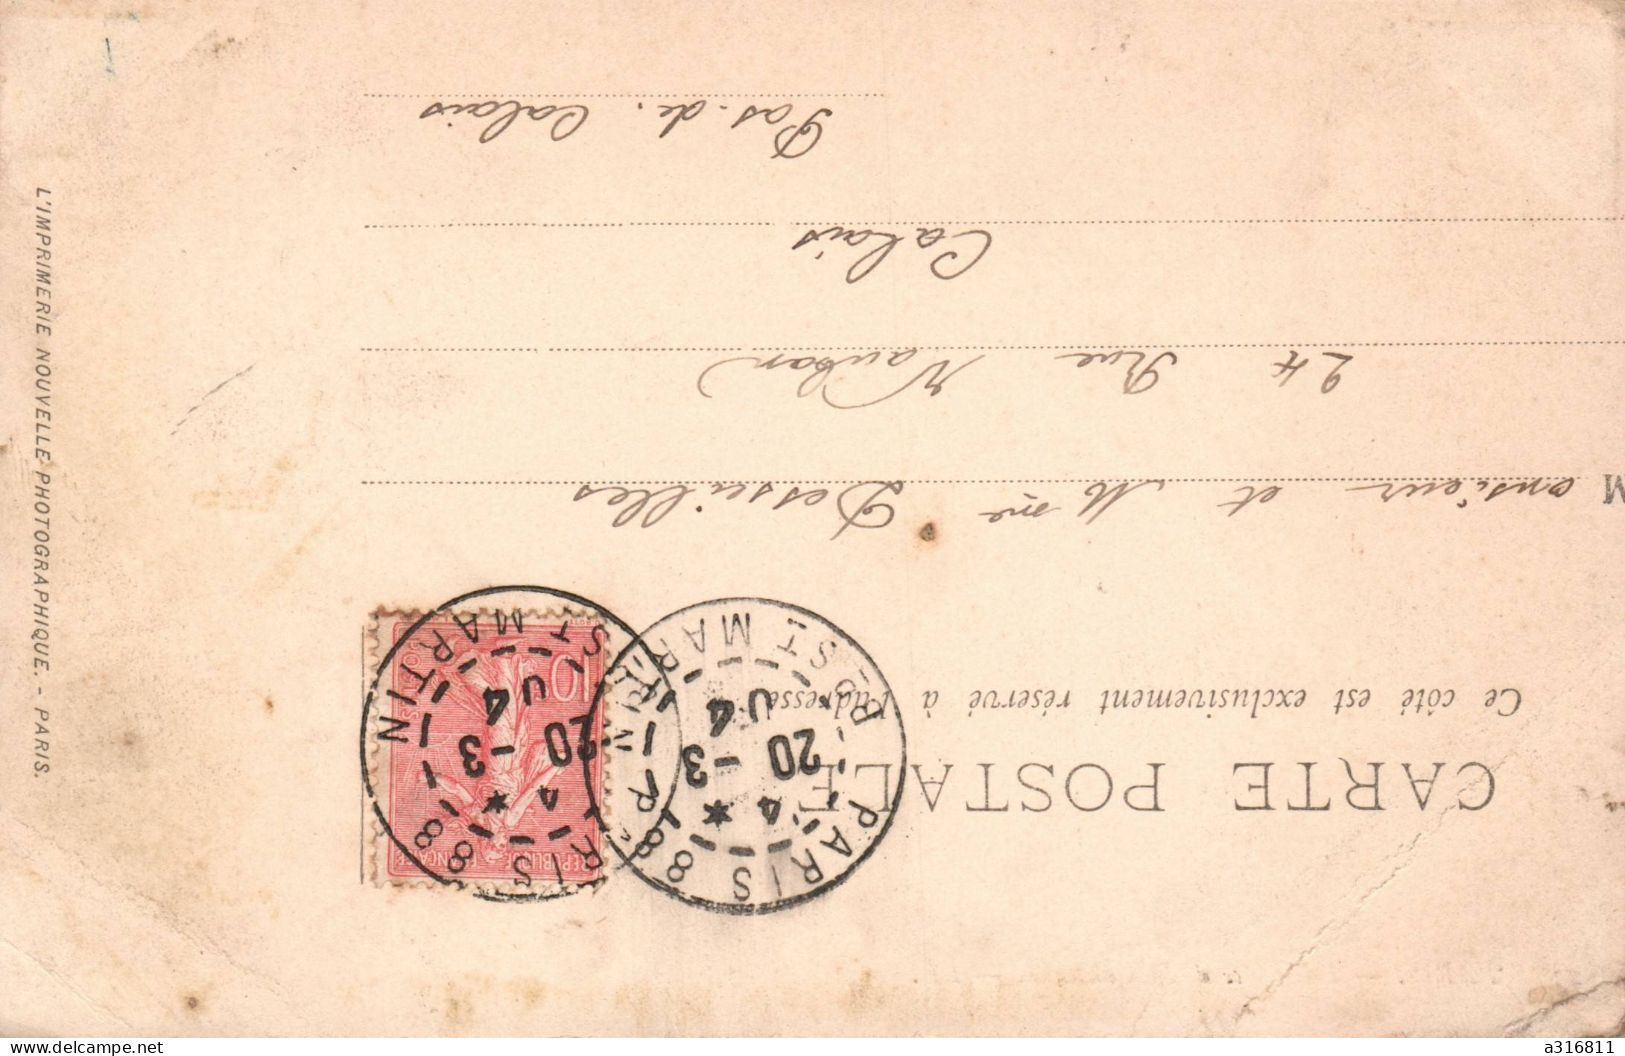 CARTE POSTALE
Ce côté est exclusivement réservé à l'adresse
Monsieur et Mme Desseilles
24 Rue Vauban
Calais
Pas-de-Calais
PARIS 88
ST MARTIN
4 *
20 -3
04
PARIS 88
Bd ST MARTIN
4 *
20 -3
04
10
POSTES
REPUBLIQUE FRANÇAISE
L'IMPRIMERIE NOUVELLE PHOTOGRAPHIQUE. - PARIS.
delcampe.net
a316811